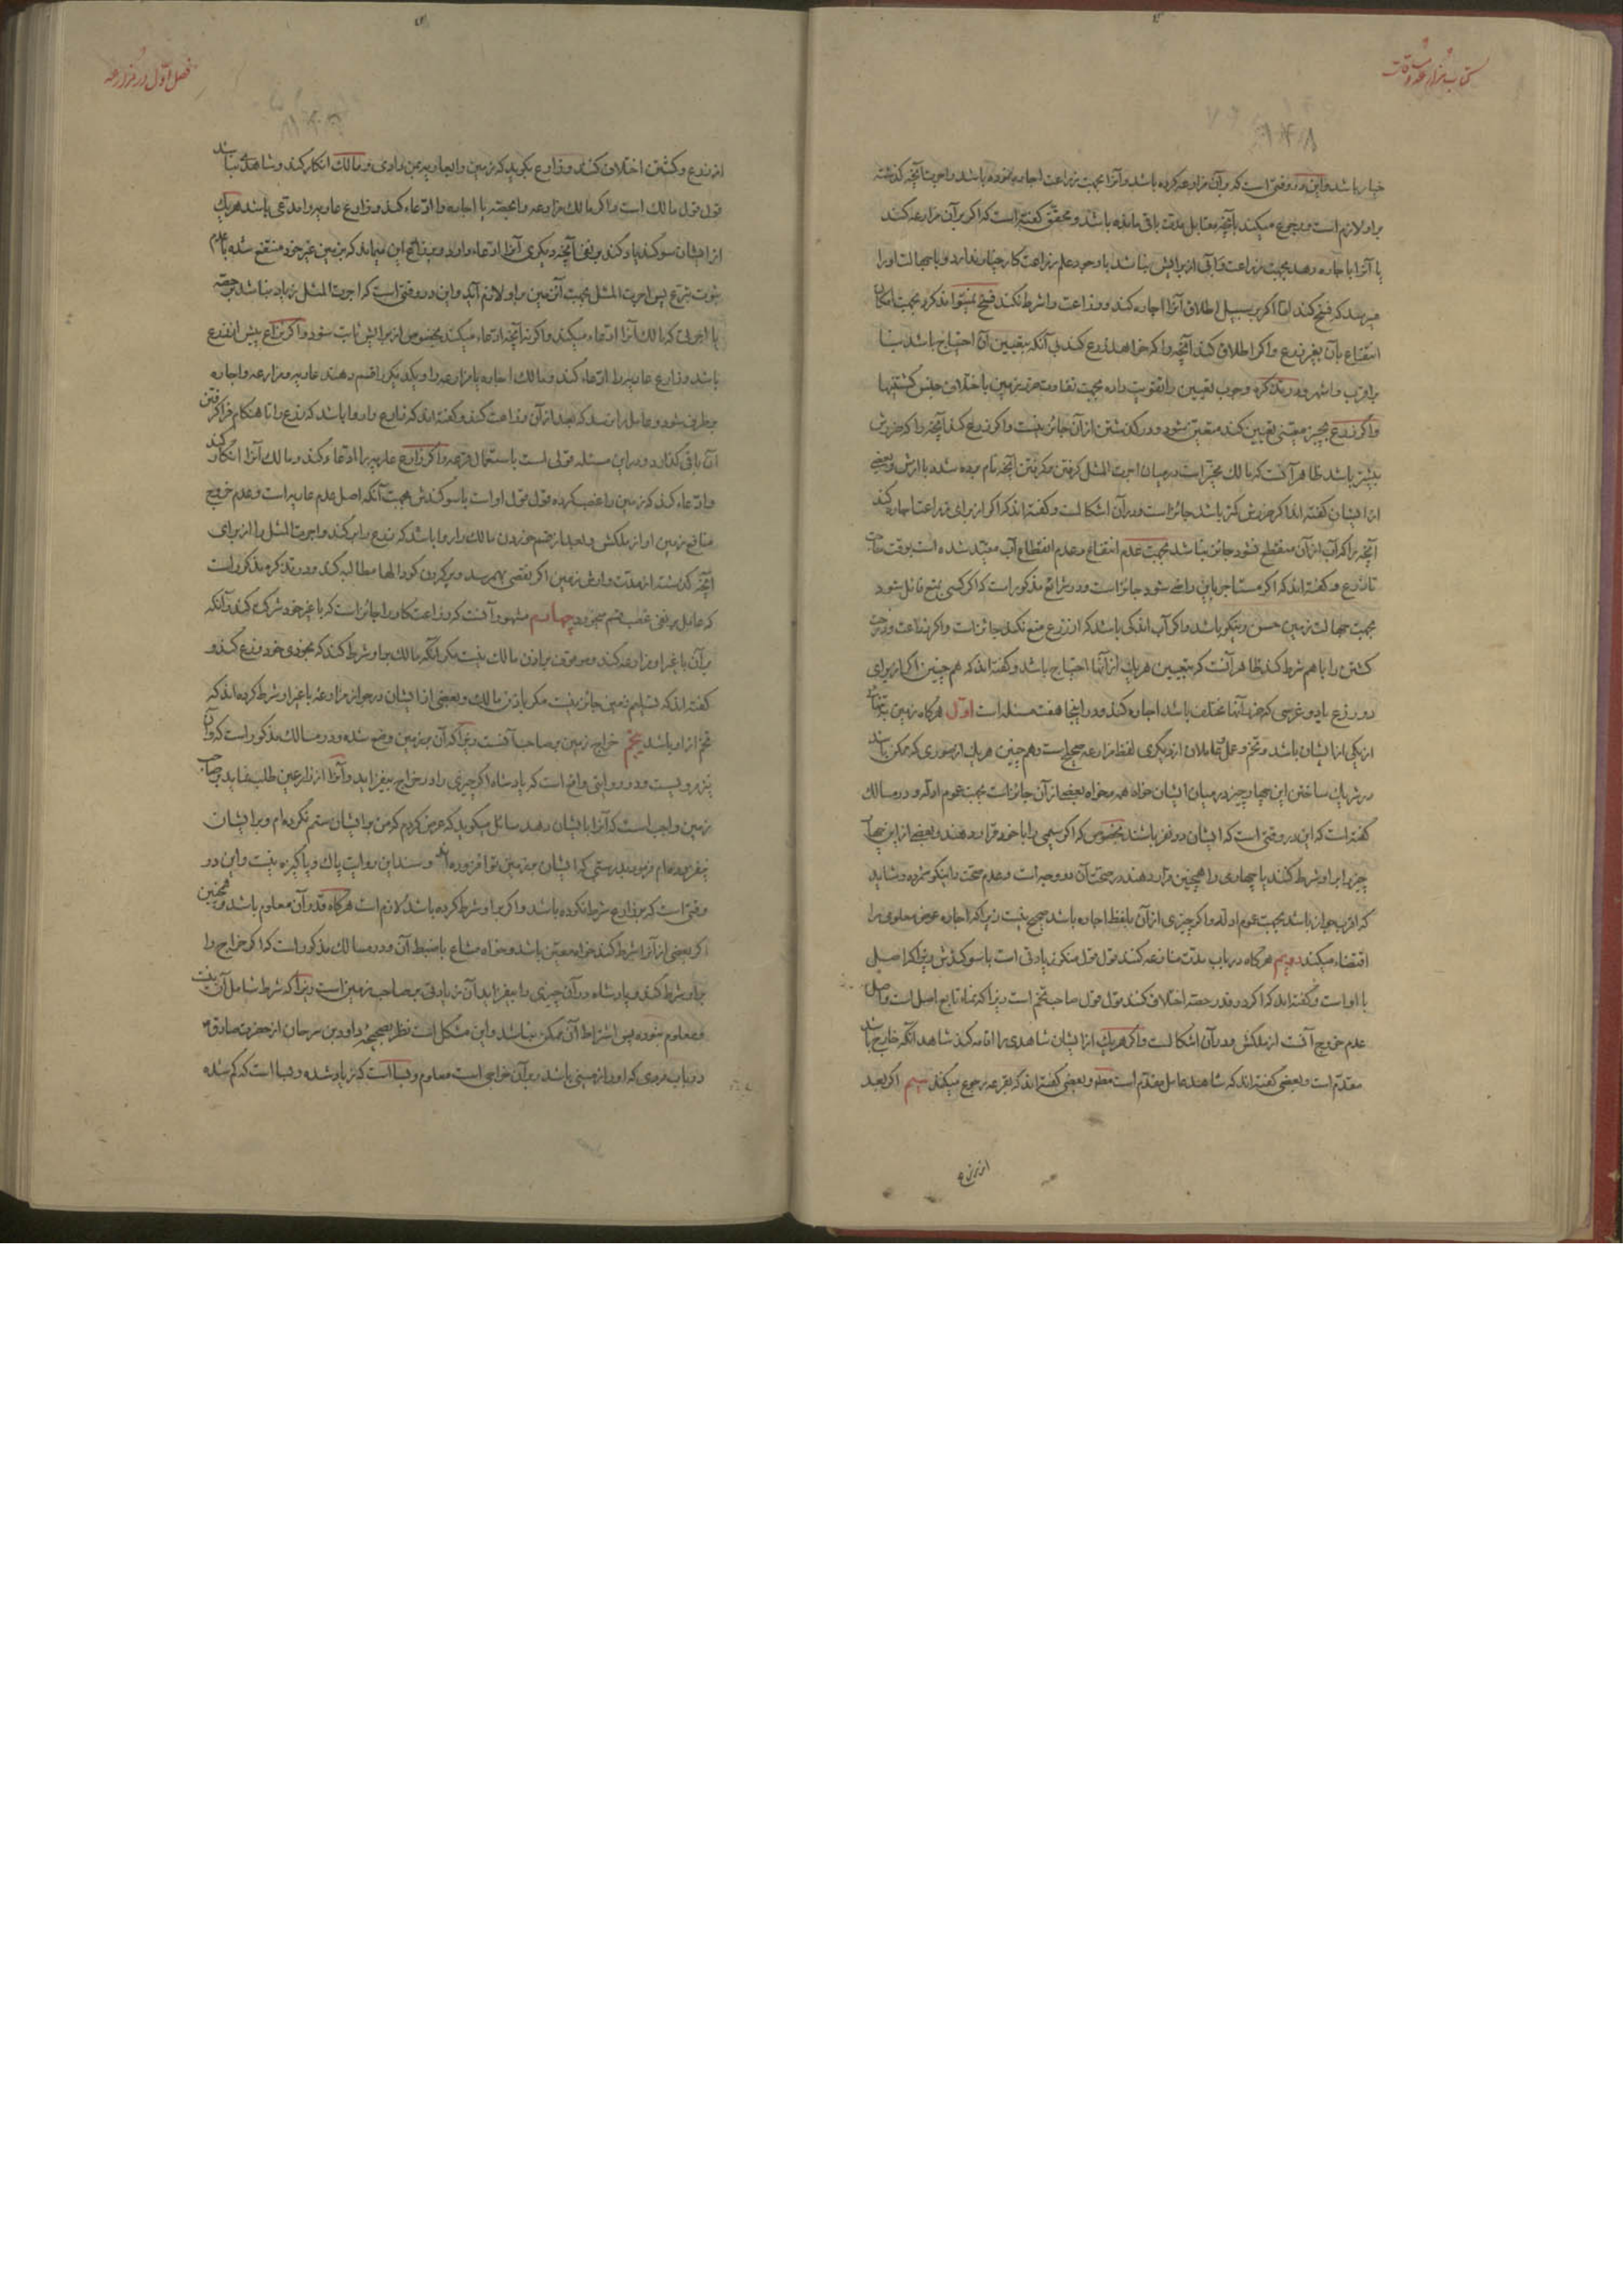 کتاب مزارعه و مساقات
خیار باشد و این در وقتی است که بر آن مزارعه کرده باشد و آنرا بجهت زراعت اجاره نموده باشد و اجرت آنچه گذشته
بر او لازم است و رجوع میکند بآنچه مقابل مدت باقی مانده باشد و محقق گفته است که اگر بر آن مزارعه کند
یا آنرا باجاره دهد بجهت زراعت و آبی از برایش نباشد با وجود علم زراعت کار خیار ندارد و با جهالت او را
میرسد که فسخ کند اما اگر بر سبیل اطلاق آنرا اجاره کند و زراعت را شرط نکند فسخ نمیتواند کرد بجهت امکان
انتفاع بآن بغیر زرع و اگر اطلاق کند آنچه را که خواهد زرع کند بی آنکه بتعیین آن احتیاج باشد بنا
بر اقرب و اشهر و در تذکره وجوب تعیین را تقویت داده بجهت تفاوت ضرر زمین باختلاف جنس کشتیها
و اگر زرع بچیز معینی تعیین کند متعین شود و در گذشتن از آن جائز نیست و اگر زرع کند آنچه را که ضررش
بیشتر باشد ظاهر آنست که مالک مخیر است در میان اجرت المثل گرفتن و گرفتن آنچه نام برده شده با ارش و بعضی
از ایشان گفته اند اگر ضررش کمتر باشد جائز است و در آن اشکالست و گفته اند که اگر از برای زراعت اجاره کند
آنچه را که آب از آن منقطع نشود جائز نباشد بجهت عدم انتفاع و عدم انقطاع آب مقید شده است بوقت حاجت
تا زرع و گفته اند که اگر مستاجر باین راضی شود جائز است و در شرائع مذکور است که اگر کسی بمنع قائل شود
بجهت جهالت زمین حسن و نیکو باشد و اگر آب اندکی باشد که از زرع منع نکند جائز است و اگر زراعت و درخت
کشتن را باهم شرط کند ظاهر آنست که بتعیین هر یک از آنها احتیاج باشد و گفته اند که هم چنین اگر از برای
دو زرع یا دو غرسی که ضرر آنها مختلف باشد اجاره کند و در اینجا هفت مسئله است اول هر گاه زمین بتنهائی
از یکی از ایشان باشد و تخم و عمل و عاملان از دیگری لفظ مزارعه صحیح است و هم چنین هر یک از صوری که ممکن باشد
در شریک ساختن این چهار چیز در میان ایشان خواه همه و خواه بعضی از آن جائز است بجهت عموم ادله و در مسالک
گفته است که این در وقتی است که ایشان دو نفر باشند بخصوص که اگر سیمی را با خود قرار دهند و بعضی از این چهار
چیز را بر او شرط کنند یا چهاری را همچنین قرار دهند در صحت آن دو وجه است و عدم صحت را نیکو شمرده و شاید
که اقرب جواز باشد بجهت عموم ادله و اگر چیزی از آن بلفظ اجاره باشد صحیح نیست زیرا که اجاره عوض معلومی را
اقتضاء میکند دویم هر گاه در باب مدت منازعه کنند قول قول منکر زیادتی است با سوگندش زیرا که اصل
با او است و گفته اند که اگر در قدر حصه اختلاف کنند قول قول صاحب تخم است زیرا که نماء تابع اصل است و اصل
عدم خروج آنست از ملکش و در آن اشکالست و اگر هر یک از ایشان شاهدی را اقامه کند شاهد آنکه خارج باشد
مقدم است و بعضی گفته اند که شاهد عامل مقدم است مطلقا و بعضی گفته اند که بقرعه رجوع میکند سیم اگر بعد
از زرع
فصل اول در مزارعه
از زرع و کشتن اختلاف کنند و زارع بگوید که زمین را بعاریه بمن دادی و مالک انکار کند و شاهد نباشد
قول قول مالک است و اگر مالک مزارعه را بحصه یا اجاره را ادعاء کند و زارع عاریه را مدعی باشد هر یک
از ایشان سوگند یاد کند بر نفی آنچه دیگری آنرا ادعاء دارد و فی این میماند که زمین غیر خود منتفع شده با عدم
ثبوت تبرع پس اجرت المثل بجهت آن زمین بر او لازم آید و این در وقتی است که اجرت المثل زیاد نباشد بر حصه
یا اجرتی که مالک آنرا ادعاء میکند و اگر نه آنچه ادعاء میکند بخصوص از برایش ثابت شود و اگر نزاع پیش از زرع
باشد و زارع عاریه را ادعاء کند و مالک اجاره یا مزارعه را و یکدیگر را قسم دهند عاریه و مزارعه و اجاره
برطرف شود و عامل را نرسد که بعد از آن زراعت کند و گفته اند که زارع را روا باشد که زرع را تا هنگام فرا گرفتن
آن باقی گذارد و در این مسئله قولی است باستعمال قرعه و اگر زارع عاریه را ادعا کند و مالک آنرا انکار کند
و ادعاء کند که زمین را غصب کرده قول قول او است با سوگندش بجهت آنکه اصل عدم عاریه است و عدم خروج
منافع زمین او از ملکش و بعد از قسم خوردن مالک را روا باشد که زرع را بر کند و اجرت المثل را از برای
آنچه گذشته از مدت و ارش زمین اگر نقصی بهم رسد و پر کردن گودالها مطالبه کند و در تذکره مذکور است
که عامل بر نفی غصب قسم میخورد چهارم مشهور آنست که زراعت کار را جائز است که با غیر خود شرکت کند و آنکه
بر آن با غیر او مزارعه کند و موقوف بر اذن مالک نیست مگر آنکه مالک بر او شرط کند که بخودی خود زرع کند و
گفته اند که تسلیم زمین جائز نیست مگر باذن مالک و بعضی از ایشان در جواز مزارعه با غیر او شرط کرده اند که
تخم از او باشد پنجم خراج زمین بر صاحب آنست زیرا که آن بر زمین وضع شده و در مسالک مذکور است که بر آن
نیز مرویست و در روایتی واقع است که پادشاه اگر چیزی را در خراج بیفزاید و آنرا از زارعین طلب نماید بر صاحب
زمین واجب است که آنرا بایشان دهد سائل میگوید که عرض کردم که من بر ایشان ستم نکرده ام و بر ایشان
نیفزوده ام فرمود بدرستی که ایشان بر زمین تو افزوده اند و سند این روایت پاک و پاکیزه نیست و این در
وقتی است که بر زارع شرط نکرده باشد و اگر بر او شرط کرده باشد لازم است هر گاه قدر آن معلوم باشد و همچنین
اگر بعضی از آنرا شرط کند خواه معین باشد و خواه مشاع با ضبط آن و در مسالک مذکور است که اگر خراج را
بر او شرط کند و پادشاه در آن چیزی را بیفزاید آن زیادتی بر صاحب زمین است زیرا که شرط شامل آن نیست
و معلوم نبوده پس اشتراط آن ممکن نباشد و این مشکل است نظر بصحیحه داود بن سرحان از حضرت صادق
در باب مردی که او را زمینی باشد و بر آن خراجی است معلوم و بسا است که زیاد شده و بسا است که کم شده